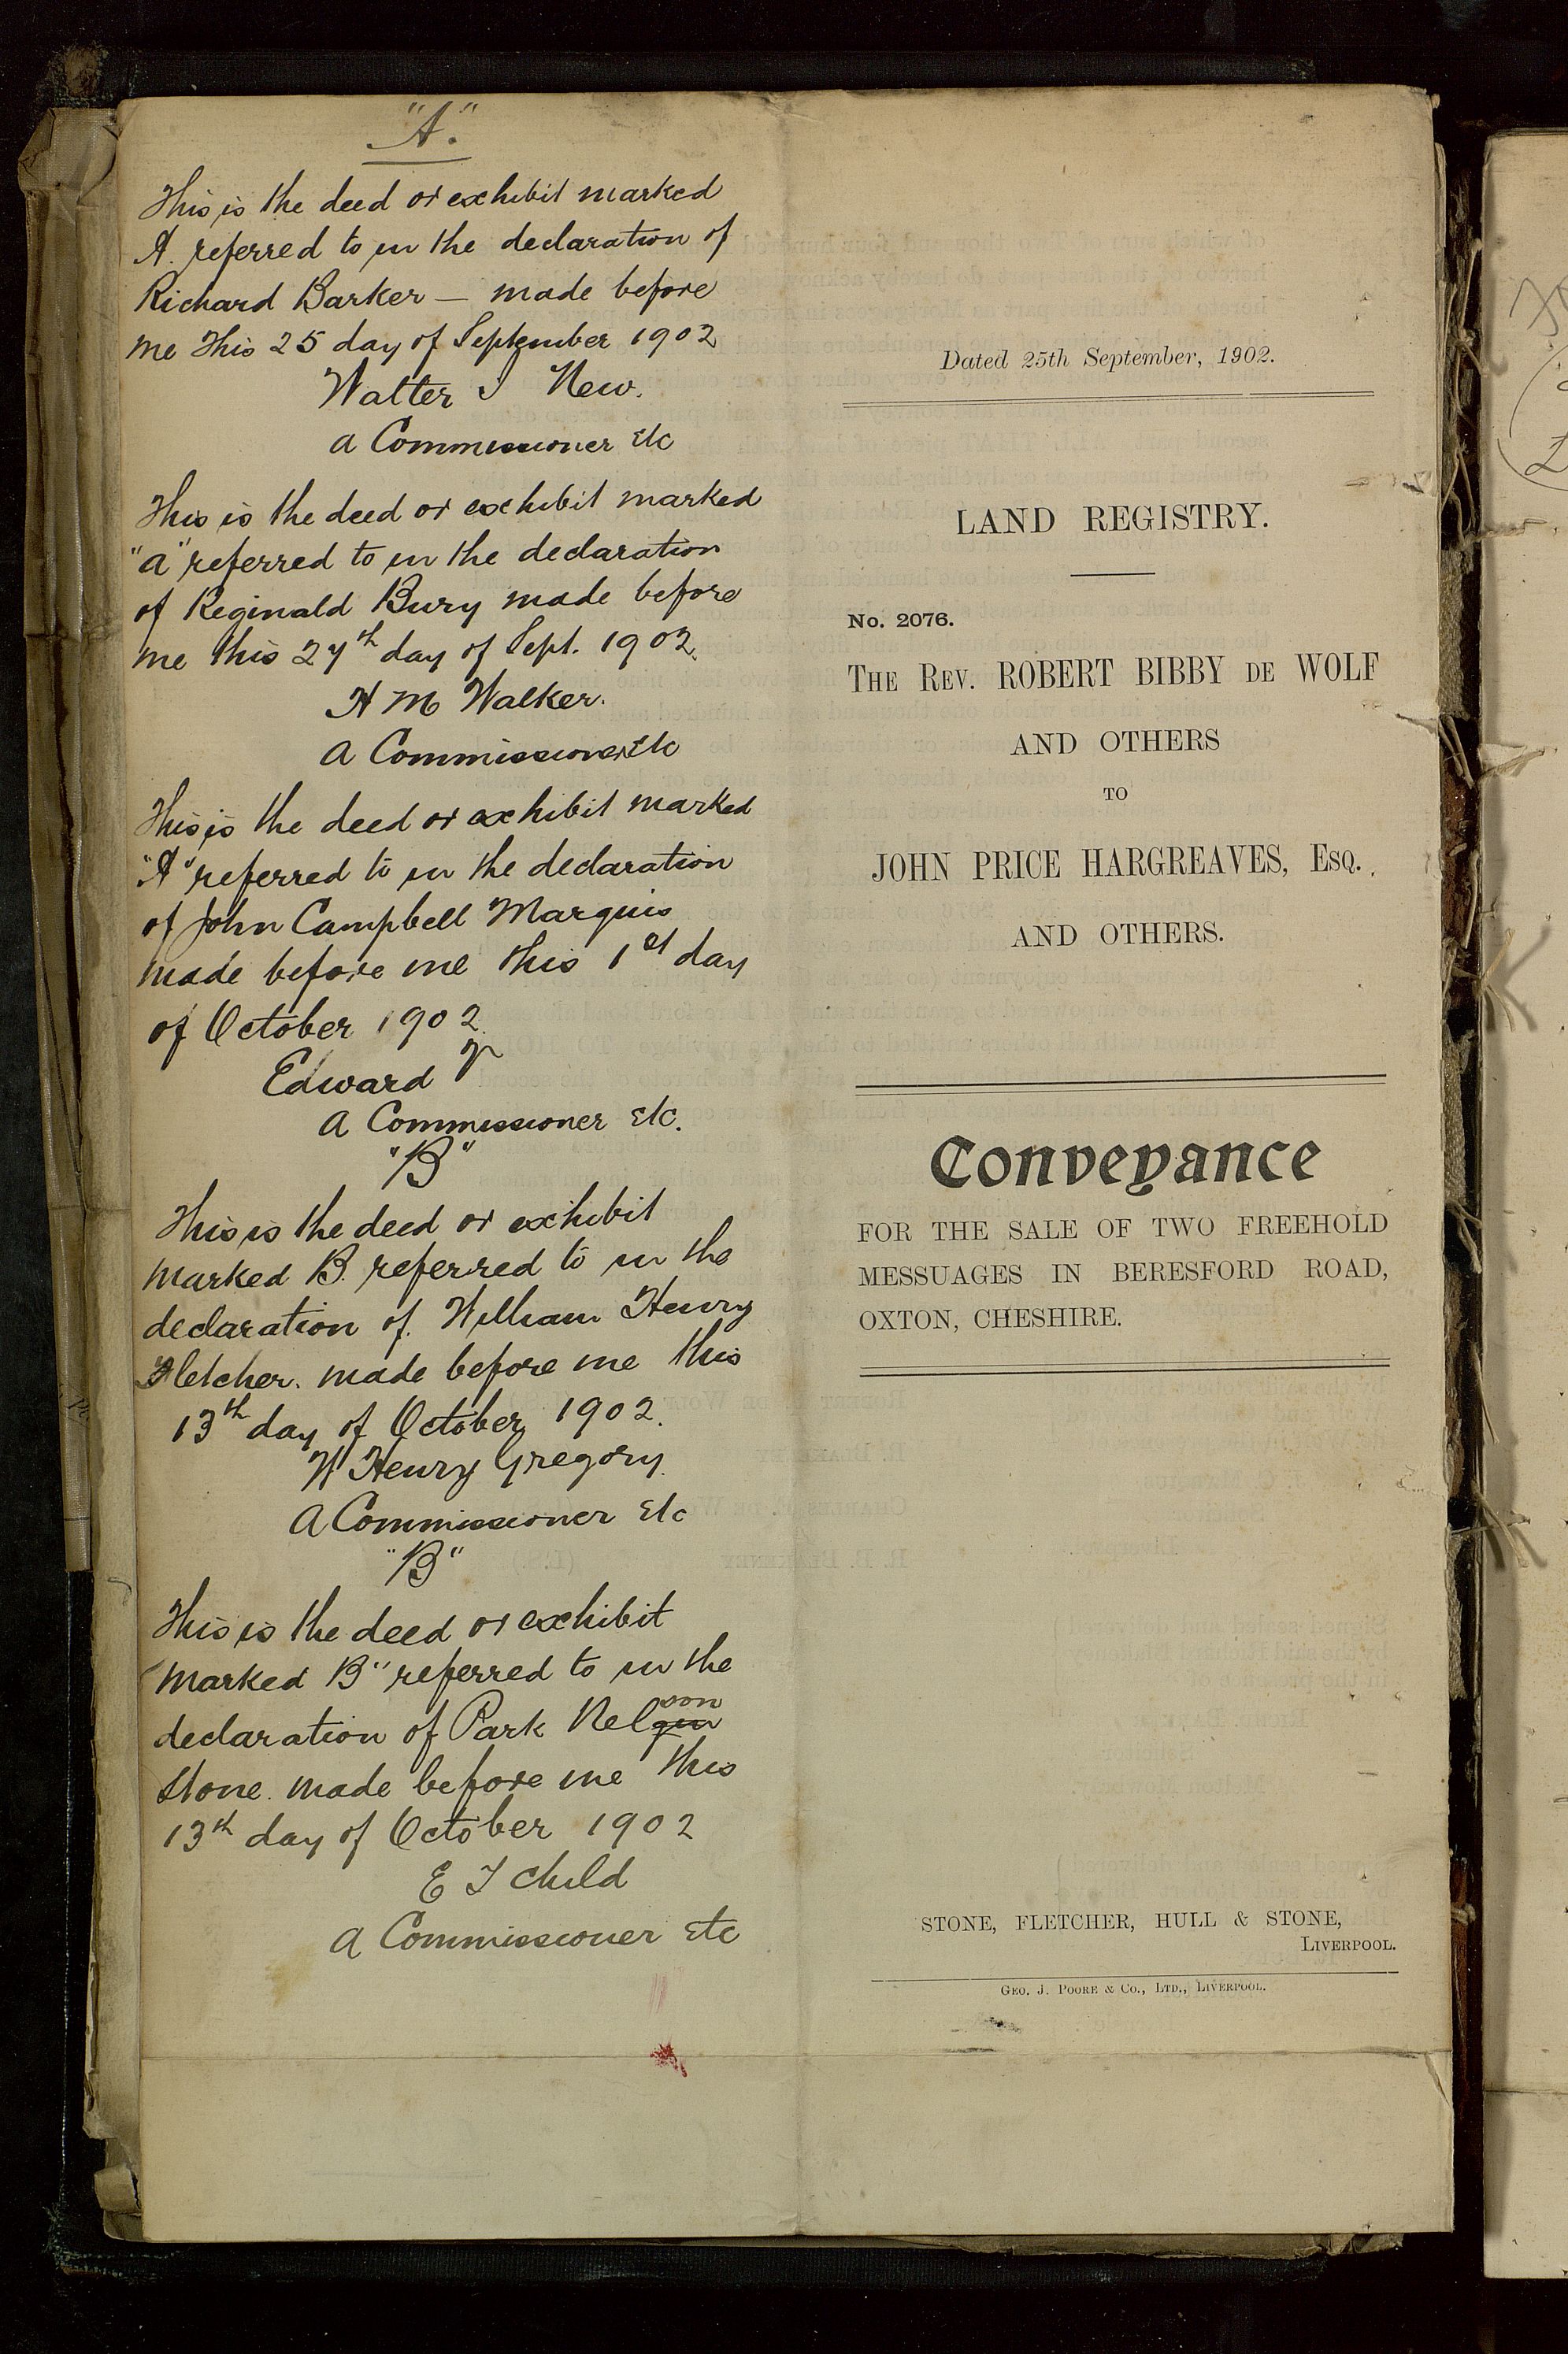 "A."
This is the deed or exhibit marked
A. referred to in the declaration of
Richard Barker — made before
me this 25 day of September 1902
Walter J New.
a Commissioner Etc
This is the deed or exhibit marked
"a" referred to in the declaration
of Reginald Bury made before
me this 27th day of Sept. 1902.
H M Walker.
a Commissioner Etc
This is the deed or exhibit marked
"A" referred to in the declaration
of John Campbell Marquis
made before me this 1st day
of October 1902
Edward
a Commissioner Etc.
"B"
This is the deed or exhibit
marked B. referred to in the
declaration of. William Henry
Fletcher. made before me this
13th day of October 1902.
W Henry Gregory.
a Commissioner Etc
"B"
This is the deed or exhibit
marked B" referred to in the
declaration of Park Nelson
Stone. made before me this
13th day of October 1902
E J Child
a Commissioner Etc
Dated 25th September, 1902.
LAND REGISTRY.
No. 2076.
THE REV. ROBERT BIBBY DE WOLF
AND OTHERS
TO
JOHN PRICE HARGREAVES, ESQ.,
AND OTHERS.
Conveyance
FOR THE SALE OF TWO FREEHOLD
MESSUAGES IN BERESFORD ROAD,
OXTON, CHESHIRE.
STONE, FLETCHER, HULL & STONE,
LIVERPOOL.
GEO. J. POORE & CO., LTD., LIVERPOOL.